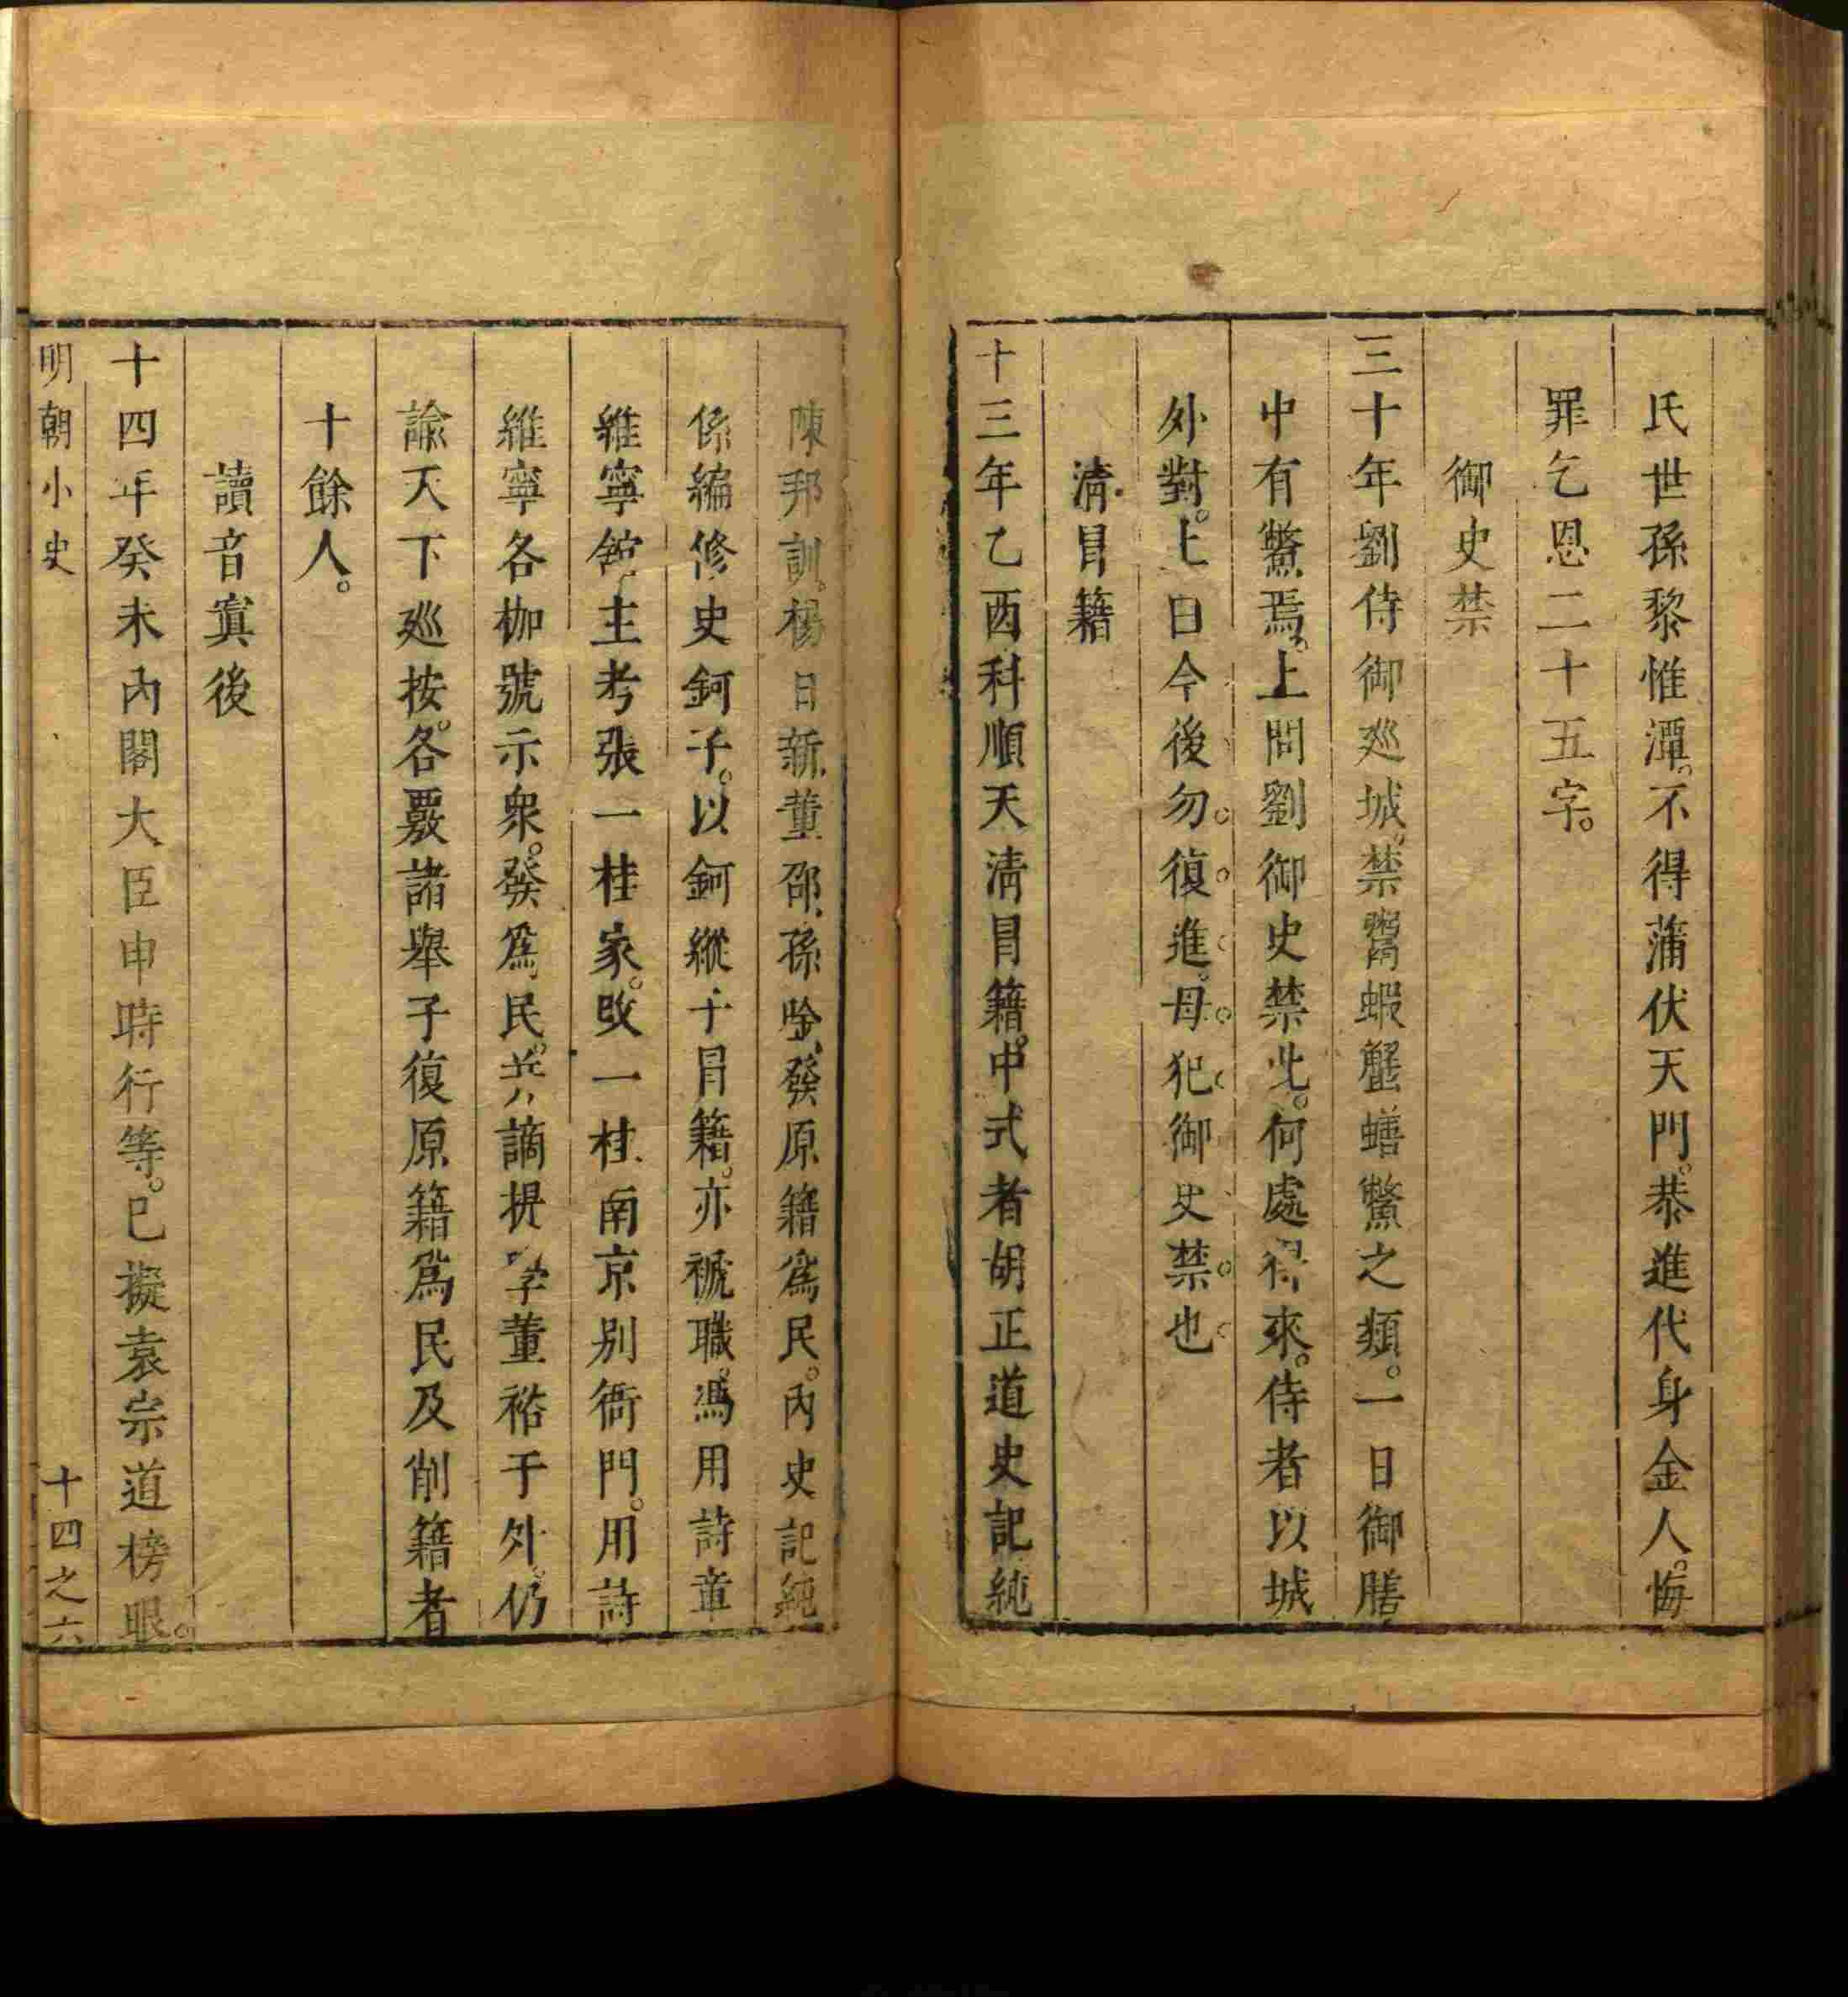 氏世孫黎惟潭。不得蒲伏天門。恭進代身金人。悔
罪乞恩二十五字。
御史禁
三十年劉侍御廵城。禁鬻蝦蟹蟮鱉之類。一日御膳
中有鱉焉。上問劉御史禁此。何處得來。侍者以城
外對。上曰今後勿復進。毋犯御史禁也
清冒籍
十三年乙酉科順天淸冒籍。中式者胡正道史記純
陳邦訓。楊日新董邵孫𡷫發原籍爲民。內史記純
係編修史鈳子。以鈳縱子冒籍。亦褫職。馮用詩童
維寧館主考張一桂家。改一桂南京别衙門。用詩
維寧各枷號示衆。發爲民。并謫提學董裕于外。仍
諭天下廵按。各覈諸舉子復原籍爲民及削籍者
十餘人。
讀音寘後
十四年癸未內閣大臣申時行等。已擬袁宗道榜眼。
明朝小史
十四之六